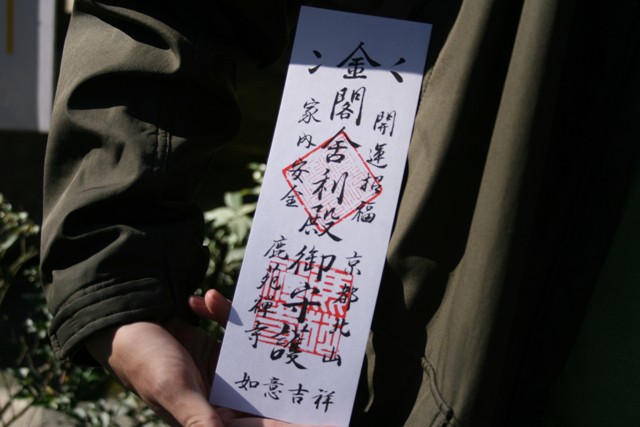 金閣舍利殿御守護
開運招福
家内安全
京都北山
鹿苑禅寺
如意吉祥